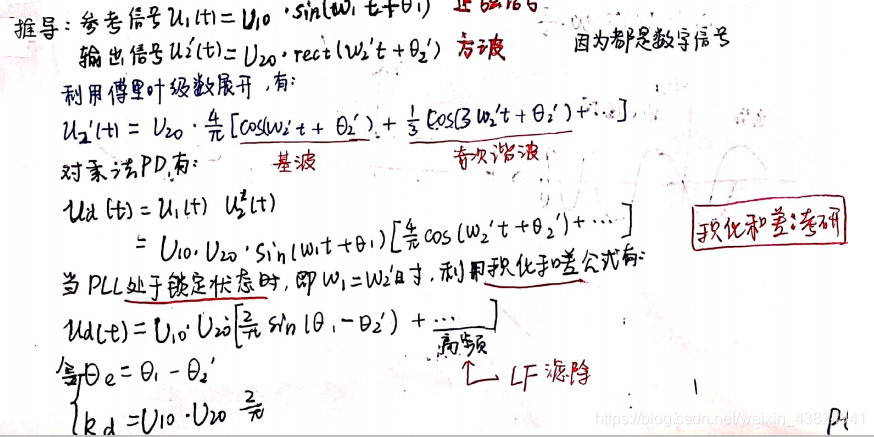 推导：参考信号 U₁(t)=U₁₀·sin(ω₁t+θ₁) 正弦信号
输出信号U₂'(t)=U₂₀·rect(ω₂'t+θ₂') 方波 因为都是数字信号
利用傅里叶级数展开,有:
U₂'(t)=U₂₀·4/π[cos(ω₂'t+θ₂')+1/3 cos(3ω₂'t+θ₂')+…],
基波 奇次谐波
对乘法PD,有:
Ud(t)=U₁(t) U₂'(t)
=U₁₀·U₂₀·sin(ω₁t+θ₁)[4/π cos(ω₂'t+θ₂')+…]
积化和差:考研
当PLL处于锁定状态时,即ω₁=ω₂'时,利用积化和差公式有:
Ud(t)=U₁₀·U₂₀[2/π sin(θ₁-θ₂')+…]
高频
令θe=θ₁-θ₂'
LF滤除
kd=U₁₀·U₂₀ 2/π